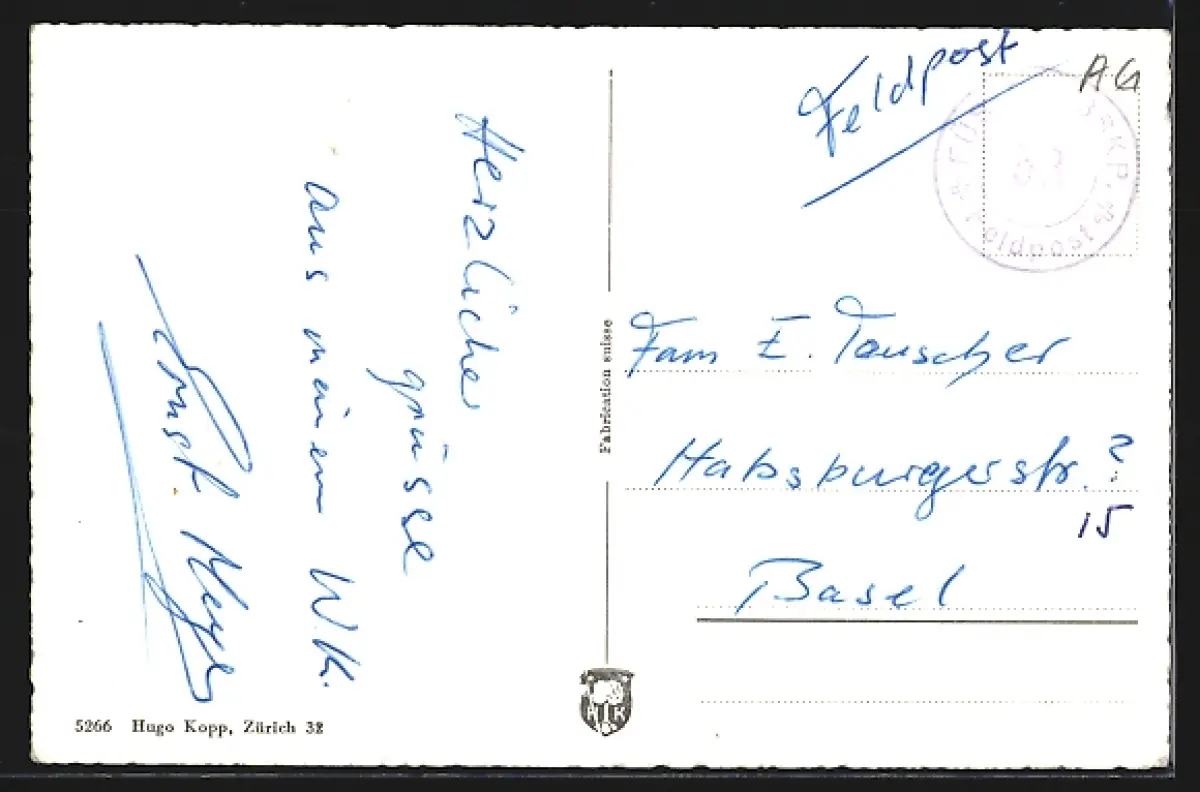 Herzliche
grüsse
aus meinem WK.
Ernst Meyer
5266 Hugo Kopp, Zürich 32
Fabrication suisse
HK
Feldpost
AG
Feldpost
Fam E. Tauscher
Habsburgerstr. ?
15
Basel